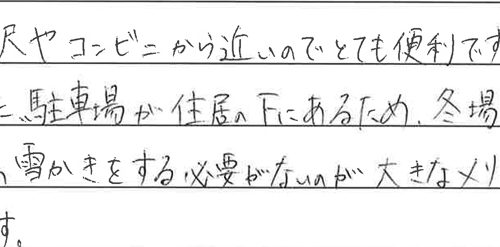 尺やコンビニから近いのでとても便利です
駐車場が住居の下にあるため、冬場
雪かきをする必要がないのが大きなメリ
す。